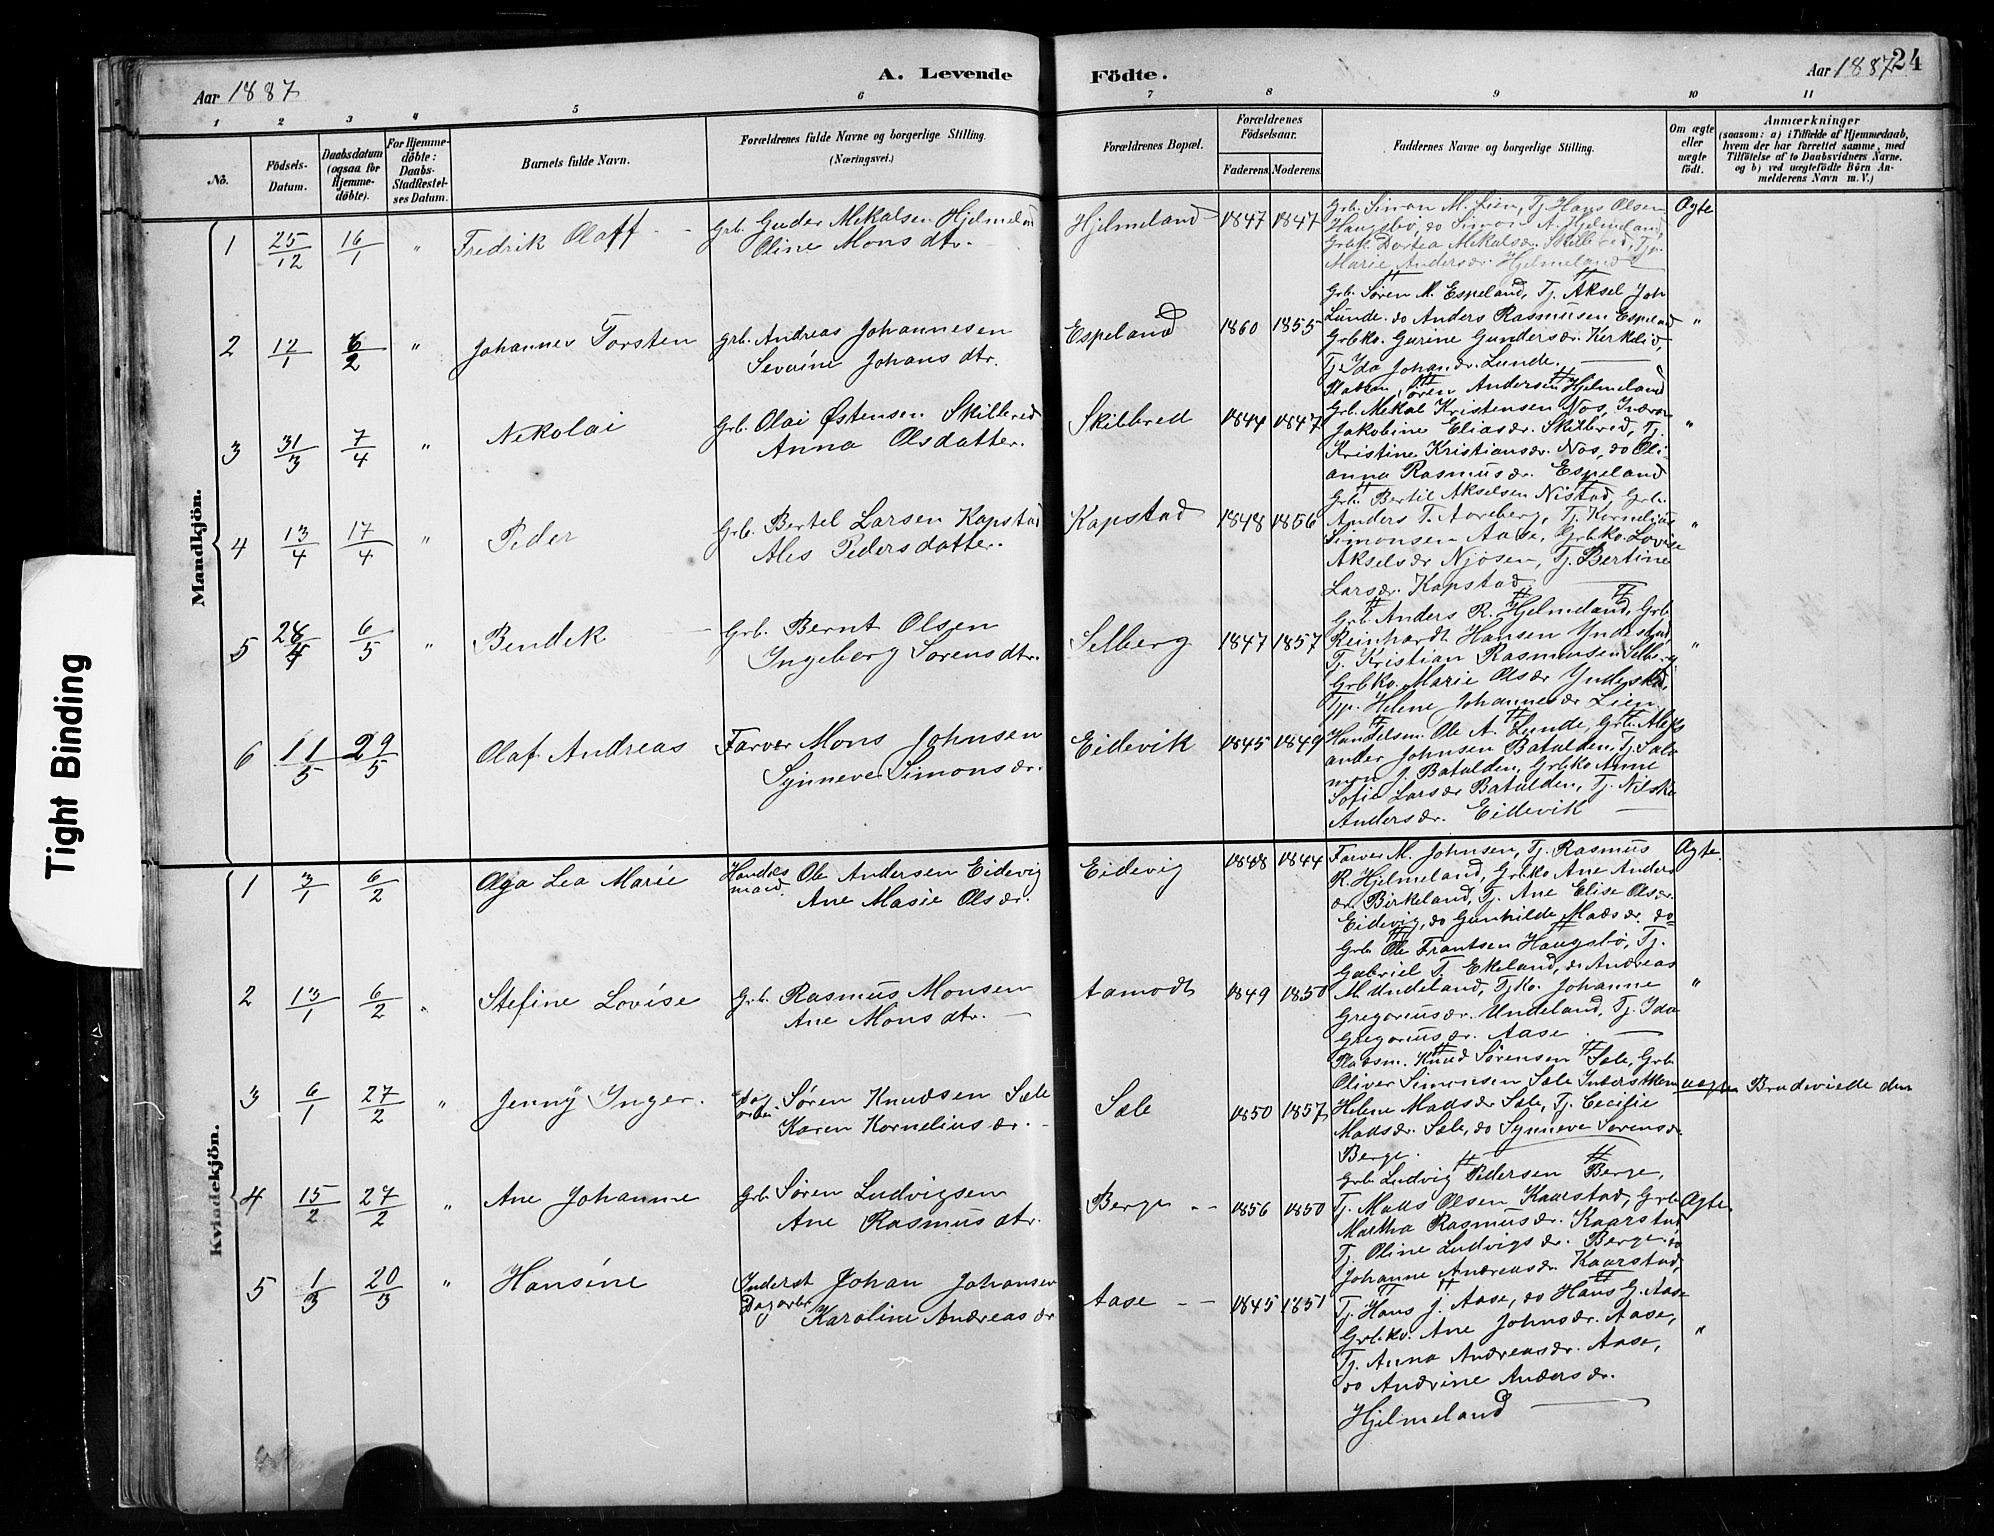 24
A. Levende Födte.
Aar 1887
Aar 1887
1 2 3 4 5 6 7 8 9 10 11
No.
Födsels-Datum.
Daabsdatum (ogsaa for Hjemme-döbte).
For Hjemme-döbte: Daabs-Stadfæstel-ses Datum.
Barnets fulde Navn.
Forældrenes fulde Navne og borgerlige Stilling.
(Næringsvei.)
Forældrenes Bopæl.
Forældrenes Födselsaar.
Faderens. Moderens.
Faddernes Navne og borgerlige Stilling.
Om ægte eller uægte födt.
Anmærkninger
(saasom: a) i Tilfælde af Hjemmedaab, hvem der har forrettet samme, med Tilföielse af to Daabsvidners Navne. og b) ved uægtefödte Börn An-melderens Navn m. V.)
Mandkjön.
1 25/12 16/1 " Fredrik Olaff Grb. Gudar Mikalsen Hjelmeland
Oline Monsdtr.
Hjelmeland 1847 1847 Ægte
Grb. Simon M. Lien, Tj. Hans Olsen
Haugsbø, do Simon A. Hjelmeland,
Grbk. Dortea Mikalsdr. Skilbred, Tjp.
Marie Andersdr. Hjelmeland
2 12/1 6/2 " Johannes Torsten Grb. Andreas Johannesen
Severine Johansdtr.
Espeland 1860 1855 "
Grb. Søren M. Espeland, Tj. Aksel Joh
Lunde. do Anders Rasmusen Espeland
Grbko. Gurine Gundersdr. Kirkelid,
Tj. Ida Johansdr. Lunde.
3 31/3 7/4 " Nikolai Grb. Olai Østensen Skilbred
Anna Olsdatter.
Skilbred 1844 1847 "
Søren Andersen Hjelmeland
Grb. Mikal Kristensen Nos,
Jakobine Eliasdr. Skilbred, Tj.
Kristine Kristiansdr. Nos, do Oli-
anna Rasmusdr. Espeland
4 13/4 17/4 " Peder Grb. Bertel Larsen Kapstad
Ales Pedersdatter.
Kapstad 1848 1856 "
Grb. Bertil Akselsen Nistad, Grb.
Anders T. Aareberg, Tj. Kornelius
Simonsen Aase, Grbko. Lovise
Akselsdr Njøsen, Tj. Bertine
Larsdr. Kapstad.
5 28/4 6/5 " Bendik Grb. Bernt Olsen
Ingeborg Sørensdtr.
Selberg 1847 1857 "
Grb. Anders R. Hjelmeland, Grb
Reinhardt Hansen Yndestad,
Tj. Kristian Rasmusen Selberg.
Grbko. Marie Olsdr Yndestad,
Tjp. Helene Johannesdr Lien
6 11/5 29/5 Olaf Andreas Farver Mons Johnsen
Synneve Simonsdr.
Eidevik 1845 1849
Handelsm. Ole A. Lunde, Grb. Aleks
ander Johnsen Batalden, Tj. Salo
mon J. Batalden, Grbko Anne
Sofie Larsdr Batalden, Tj. Nilska
Andersdr. Eidevik
Kvindekjön.
1 3/1 6/2 Olga Lea Marie Handels
mand Ole Andersen Eidevig
Ane Marie Olsdr.
Eidevig 1848 1844 Ægte.
Farver M. Johnsen, Tj. Rasmus
R. Hjelmeland, Grbko Ane Anders
dr. Birkeland, Tj. Ane Elise Olsdr.
Eidevig, do Gunhilde Madsdr. do
2 13/1 6/2 " Stefine Lovise Grb. Rasmus Monsen
Ane Monsdtr.
Aamodt 1849 1850 "
Grb. Ole Frantsen Haugsbø, Tj.
Gabriel T. Ekeland, do Andreas
M. Undeland, Tjko. Johanne
Gregoriusdr. Undeland, Tj. Ida
Gregoriusdr. Aase.
3 6/1 27/2 " Jenny Inger. Dag
arbei. Søren Knudsen Sæle
Karen Korneliusdr.
Sæle 1850 1857 uægte Brudeviede den
Knud Sørensen Sæle, Grb
Oliver Simonsen Sæle
Helene Madsdr Sæle, Tj. Cecilie
Madsdr. Sæle, do Synneve Sørensdr
Berge.
4 15/2 27/2 " Ane Johanne Grb. Søren Ludvigsen
Ane Rasmusdtr.
Berge 1856 1850 Ægte.
Grb. Ludvig Pedersen Berge,
Tj. Mads Olsen Kaarstad, Grbk
Martha Rasmusdr. Kaarstad
Tj. Oline Ludvigsdr. Berge. do
Johanne Andreasdr. Kaarstad,
5 1/3 20/3 " Hansine Inderst
Dagarbr Johan Johansen
Karoline Andreasdr
Aase 1845 1851 "
Tj. Hans J. Aase, do Hans G. Aase
Grbko. Ane Johnsdr. Aase,
Tj. Anna Andreasdr. Aase,
do Andrine Andersdr.
Hjelmeland
Tight Binding